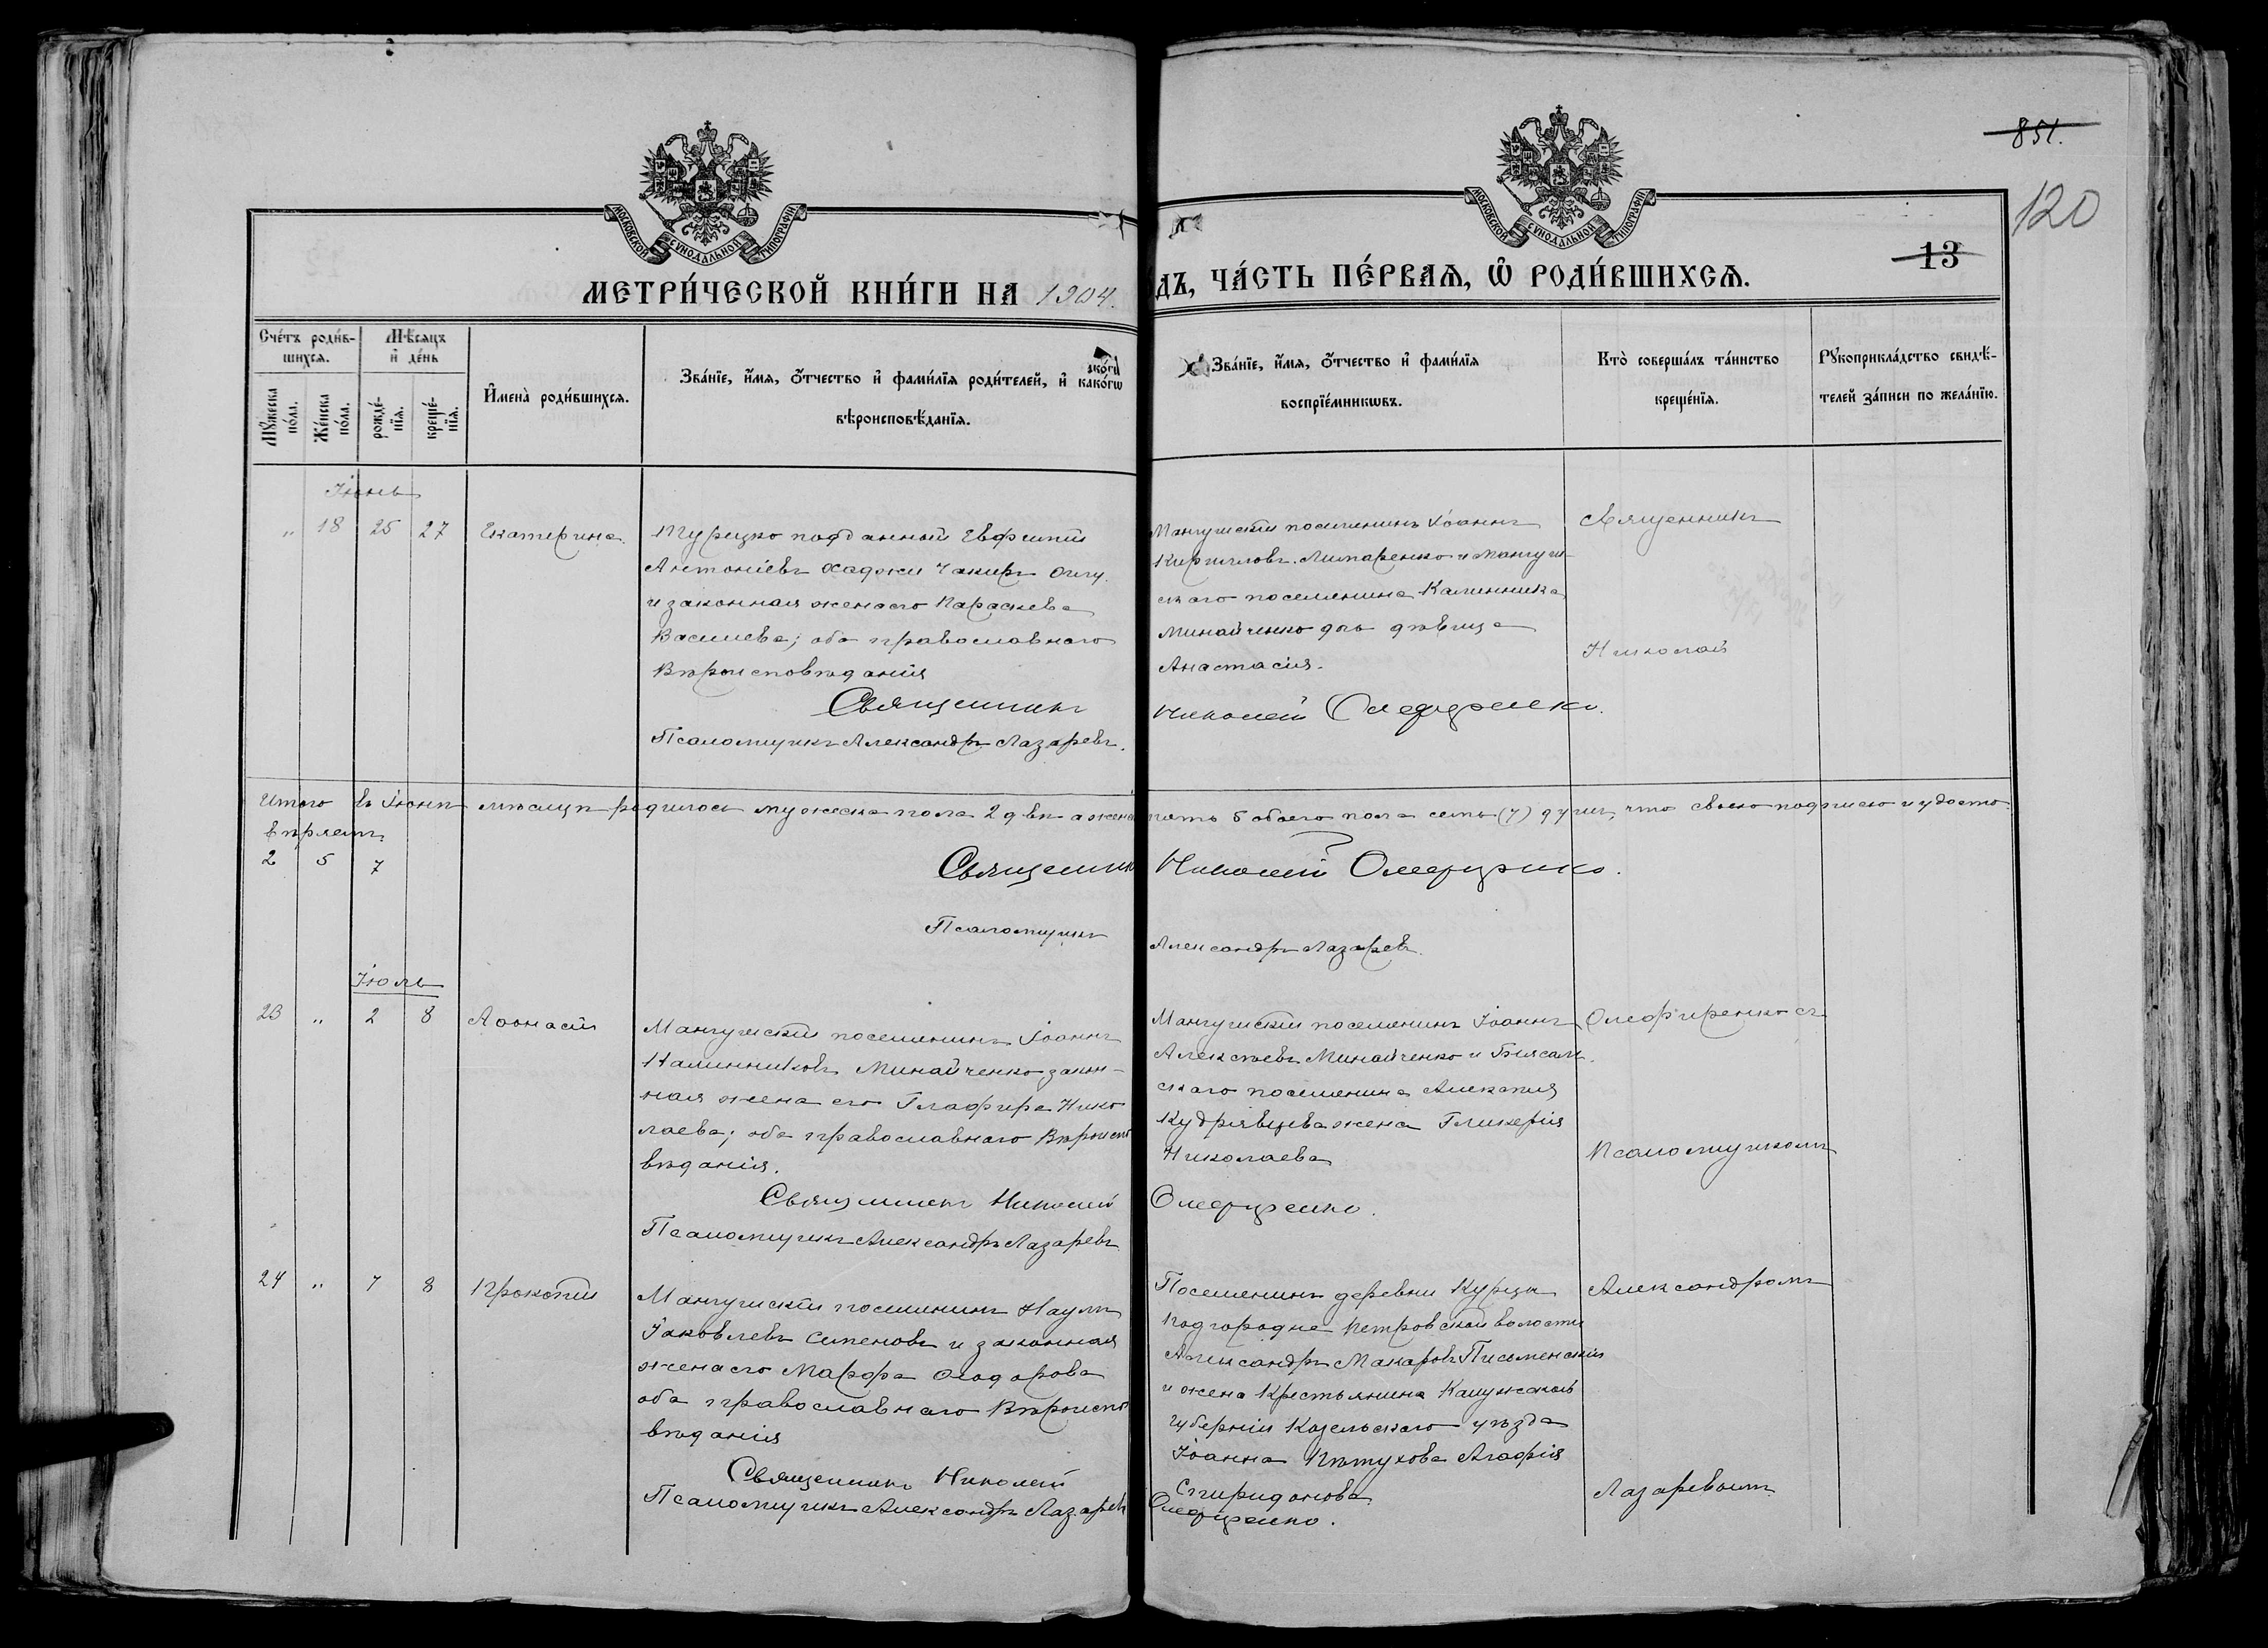 851.
120
13
МОСКОВСКОЙ СѴНОДАЛЬНОЙ ТИПОГРАФІИ
МОСКОВСКОЙ СѴНОДАЛЬНОЙ ТИПОГРАФІИ
МЕТРИ́ЧЕСКОЙ КНИ́ГИ НА 1904 ДЪ, ЧА́СТЬ ПЕ́РВАЯ, Ѡ҆ РОДИ́ВШИХСЯ.
Сче́тъ роди́в-
шихся.
Мѣ́сяцъ
и҆ де́нь
Мꙋ́жеска по́ла.
Же́нска по́ла.
рожде́-нїя.
креще́-нїя.
И҆мена̀ роди́вшихся.
Зва́нїе, и҆́мя, ѻ҆́тчество и҆ фами́лїя роди́телей, и҆ како́гѡ
вѣроисповѣ́данїя.
Зва́нїе, и҆́мя, ѻ҆́тчество и҆ фами́лїя
воспрїе́мникѡвъ.
Кто̀ соверша́лъ та́инство
креще́нїя.
Рꙋкоприкла́дство свидѣ́-
телей за́писи по жела́нїю.
Іюнь
„ 18 25 27 Екатерина.
Турецко подданный Евфимій
Антоніевъ Хаджи Чакиръ Оглу
и законная жена его Параскева
Васильева; оба православнаго
Вѣроисповѣданія
Священникъ
Псаломщикъ Александръ Лазаревъ.
Мангушскій поселянинъ Іоаннъ
Кирилловъ Липаренко и Мангуш-
скаго поселянина Калинника
Минайченко дочь дѣвица
Анастасія.
Николай Олефиренко.
Священникъ
Николай
Итого въ Іюнѣ мѣсяцѣ родилось мужеска пола 2 два а женска пять 5 обоего пола семь (7) душъ, что своею подписью и удосто-
вѣряемъ.
2 5 7
Священникъ Николай Олефиренко.
Псаломщикъ Александръ Лазаревъ.
Іюль
23 „ 2 8 Аѳонасій
Мангушскій поселянинъ Іоаннъ
Калинниковъ Минайченко закон-
ная жена его Глафира Нико
лаева; оба православнаго Вѣроиспо
вѣданія.
Священникъ Николай
Псаломщикъ Александръ Лазаревъ
Мангушскій поселянинъ Іоаннъ
Алексѣевъ Минайченко и Біясаль-
скаго поселянина Алексѣя
Кудрявцева жена Гликерія
Николаева
Олефиренко.
Олефиренко съ
Псаломщикомъ
24 „ 7 8 Прокопій
Мангушскій поселянинъ Наумъ
Іаковлевъ Семеновъ и законная
жена его Марфа Ѳеодорова
оба православнаго Вѣроиспо
вѣданія
Священникъ Николай
Псаломщикъ Александръ Лазаревъ
Поселянинъ деревни Курцы
Подгородне Петровской волости
Александръ Макаровъ Письменскій
и жена Крестьянина Калужской
губерніи Козельскаго уѣзда
Іоанна Пѣтухова Агафія
Спиридонова
Олефиренко.
Александромъ
Лазаревымъ